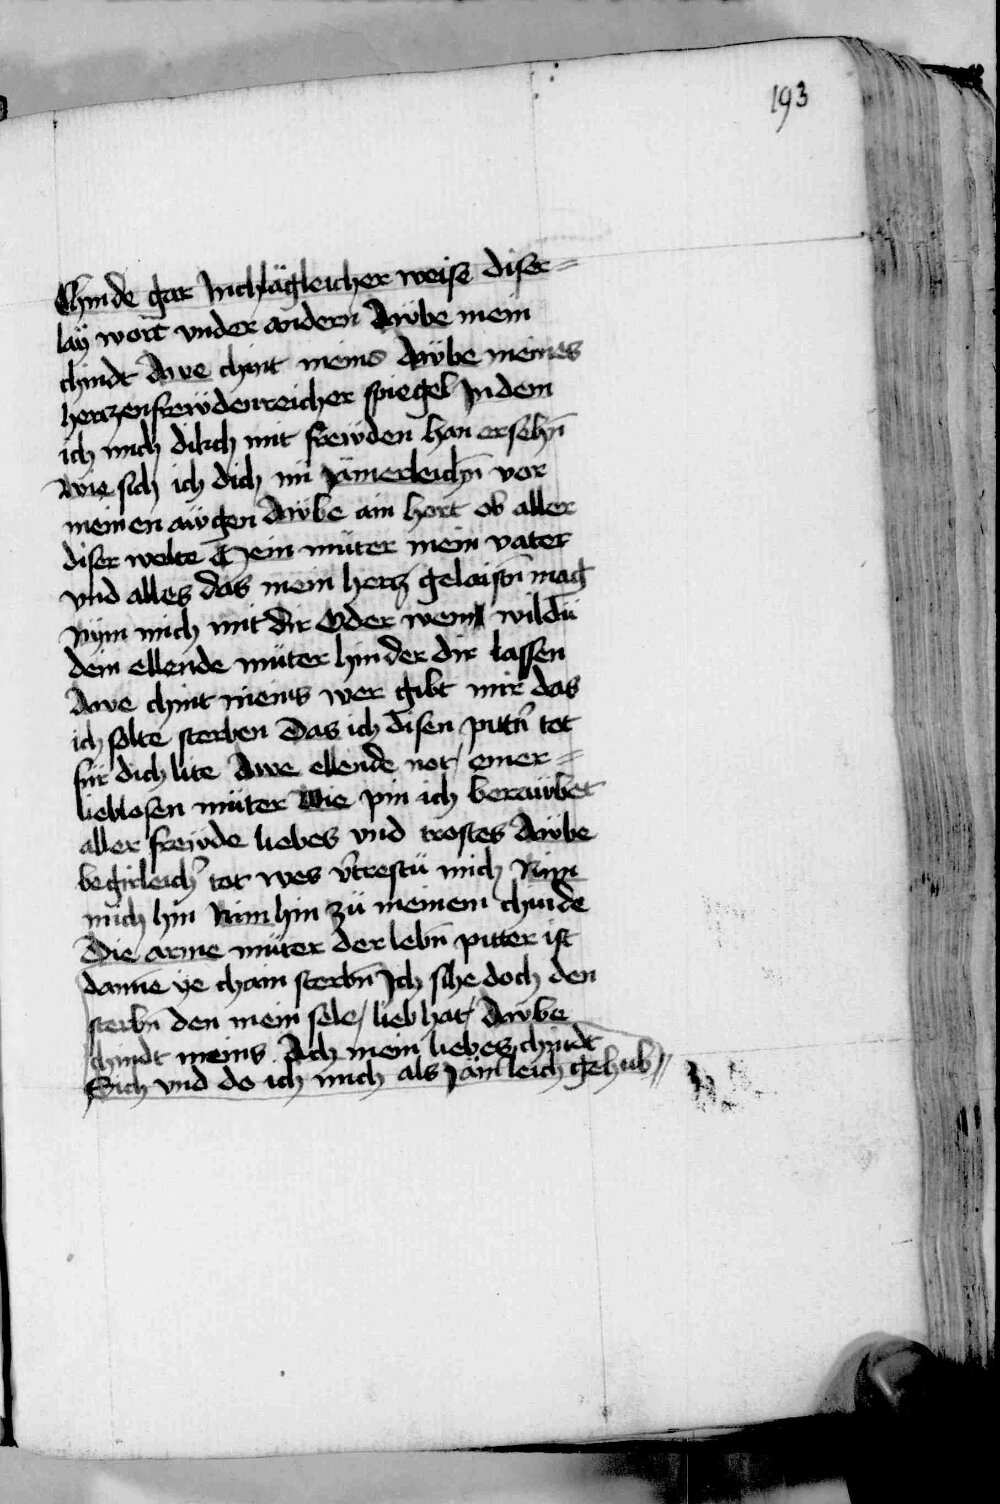 193
Chinde gar Inchlägleicher weise diser=
läy wort vnder andern Awbe mein
chindt Awe chint meins Awbe meines
hertzenfrewdenreicher spiegel In dem
ich mich dikch mit frewden han ersehn̄
wie sich ich dich nü Jämerleichn̄ vor
meinen awgen Awbe ain hort ob aller
diser welte Mein müter mein vater
vnd alles das mein hertz gelaistn̄ mag
Nÿm mich mit dir Oder wem wildü
dein ellende müter hinder dir lassen
Awe chint meins wer gibt mir das
ich solte sterben Das ich disen pittn̄ tot
für dich lite Awe ellende not / einer=
lieblosen müter Wie pin ich berawbet
aller frewde liebes vnd trostes Awbe
begirleich̄ tot wes v̄trestü mich Nim
mich hin Nim hin zü meinem chinde
Die arme müter der lebn̄ pitter ist
danne ye chain sterbn̄ Ich sihe doch den
sterbn̄ den mein sele / lieb hat / Awbe
chindt meins . Ach mein liebes chindt
Sich vnd do ich mich als Jāmleich gehub //